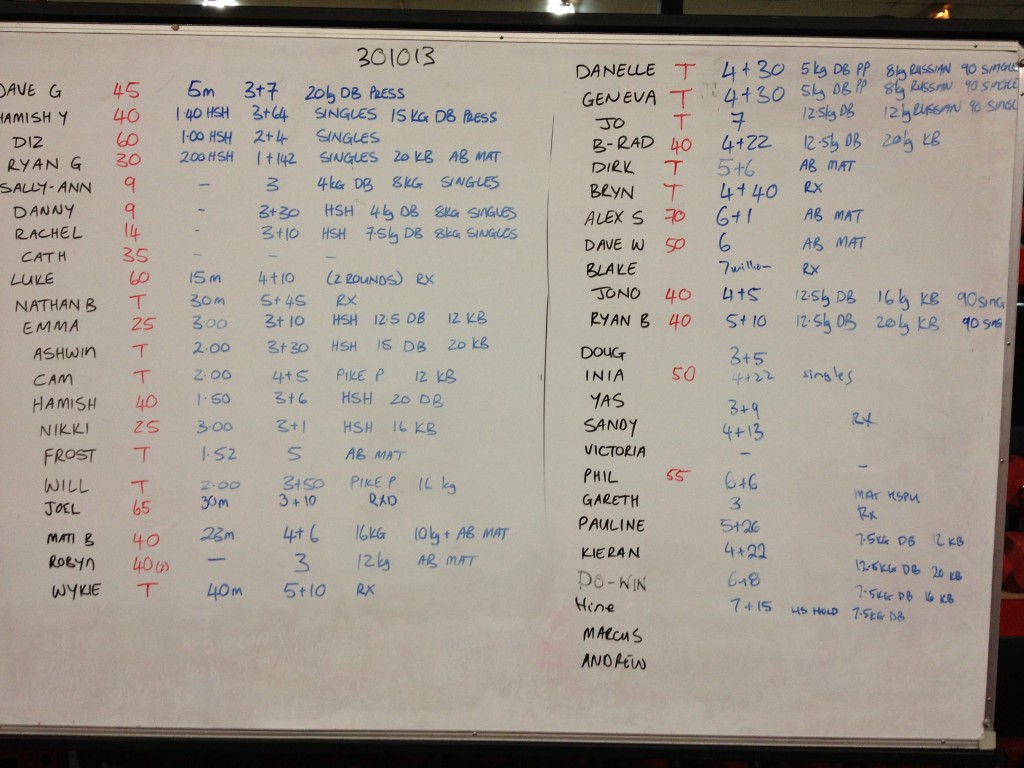 301013
DAVE G 45 5m 3+7 20kg DB PRESS
HAMISH Y 40 1·40 HSH 3+64 SINGLES 15KG DB PRESS
DIZ 60 1:00 HSH 2+4 SINGLES
RYAN G 30 200 HSH 1+142 SINGLES 20 KB AB MAT
SALLY-ANN 9 – 3 4KG DB 8KG SINGLES
DANNY 9 - 3+30 HSH 4kg DB 8KG SINGLES
RACHEL 14 - 3+10 HSH 7.5kg DB 8KG SINGLES
CATH 35 - - -
LUKE 60 15m 4+10 (2 ROUNDS) RX
NATHAN B T 30m 5+45 RX
EMMA 25 3:00 3+10 HSH 12.5 DB 12 KB
ASHWIN T 2·00 3+30 HSH 15 DB 20 KB
CAM T 2·00 4+5 PIKE P 12 KB
HAMISH 40 1·50 3+6 HSH 20 DB
NIKKI 25 3:00 3+1 HSH 16 KB
FROST T 1·52 5 AB MAT
WILL T 2:00 3+50 PIKE P 16 kg
JOEL 65 30m 3+10 RXD
MATT B 40 23m 4+6 16KG 10kg + AB MAT
ROBYN 40 — 3 12kg AB MAT
WYKIE T 40m 5+10 RX
DANELLE T 4+30 5kg DB PP 8kg RUSSIAN 90 SINGLE
GENEVA T 4+30 5kg DB PP 8kg RUSSIAN 90 SINGLE
JO T 7 12.5kg DB 12kg RUSSIAN 90 SINGL
B-RAD 40 4+22 12.5kg DB 20kg KB
DIRK T 5+6 AB MAT
BRYN T 4+40 RX
ALEX S 70 6+1 AB MAT
DAVE W 50 6 AB MAT
BLAKE 7 RX
JONO 40 4+5 12.5kg DB 16kg KB 90 SING
RYAN B 40 5+10 12.5kg DB 20kg KB 90 SNG
DOUG 3+5
INIA 50 4+22 singles
YAS 3+9 RX
SANDY 4+13
VICTORIA – –
PHIL 55 6+6 MAT HSPU
GARETH 3 Rx
PAULINE 5+26 7.5KG DB 12 KB
KIERAN 4+22 12.5KG DB 20 KB
DO-WIN 6+8 7.5KG DB 16 KB
Hine 7+15 HS HOLD 7.5KG DB
MARCUS
ANDREW